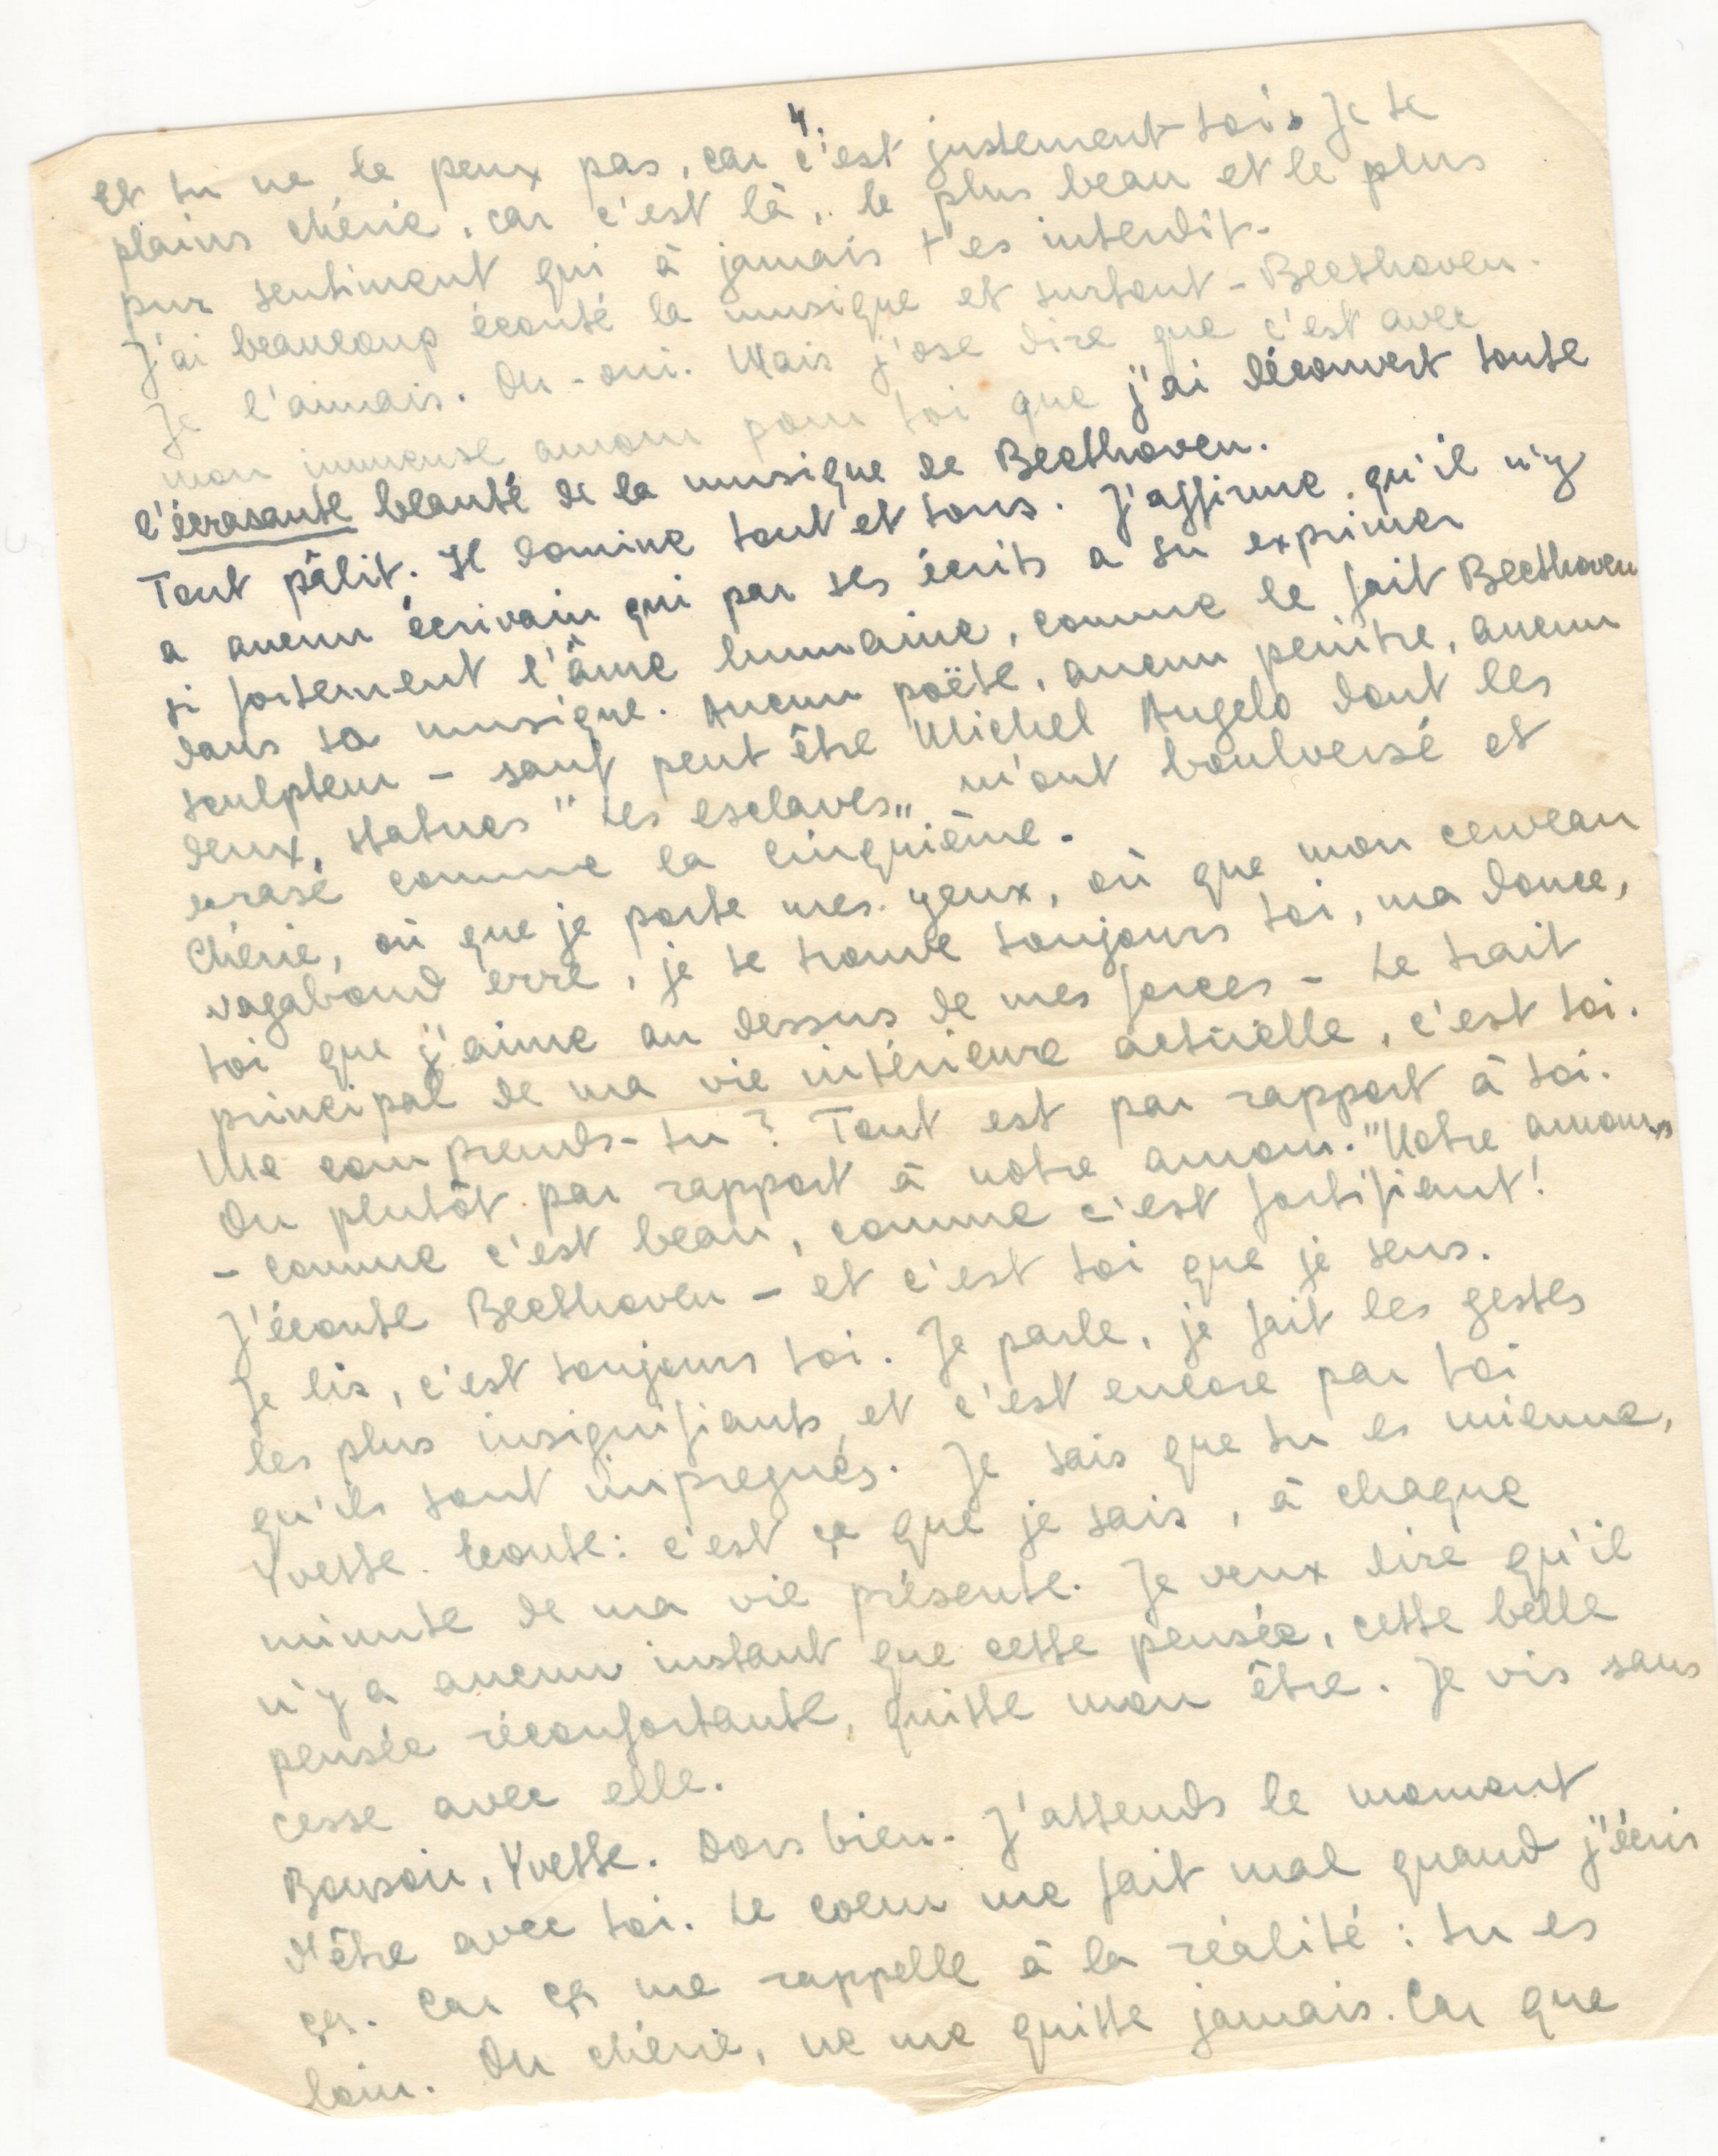 4.
Et tu ne le peux pas, car c'est justement toi. Je te
plains chérie, car c'est là, le plus beau et le plus
pur sentiment qui à jamais t'es interdit.
J'ai beaucoup écouté la musique et surtout - Beethoven.
Je l'aimais. Ou - oui. Mais j'ose dire que c'est avec
mon immense amour pour toi que j'ai découvert toute
l'écrasante beauté de la musique de Beethoven.
Tout pâlit. Il domine tout et tous. J'affirme, qu'il n'y
a aucun écrivain qui par ses écrits a su exprimer
si fortement l'âme humaine, comme le fait Beethoven
dans sa musique. Aucun poëte, aucun peintre, aucun
sculpteur - sauf peut être Michel Angelo dont les
deux, statues "Les esclaves" m'ont boulversé et
erasé comme la cinquième.
Chérie, où que je porte mes yeux, où que mon cerveau
vagabond erre, je te trouve toujours toi, ma douce,
toi que j'aime au dessus de mes forces - Le trait
principal de ma vie intérieure actuelle, c'est toi.
Me comprends-tu? Tout est par rapport à toi.
Ou plutôt par rapport à notre amour. "Notre amour"
- comme c'est beau, comme c'est fortifiant!
J'écoute Beethoven - et c'est toi que je sens.
Je lis, c'est toujours toi. Je parle, je fait les gestes
les plus insignifiants, et c'est encore par toi
qu'ils sont impregnés. Je sais que tu es mienne,
Yvette. Ecoute: c'est ça que je sais, à chaque
minute de ma vie présente. Je veux dire qu'il
n'y a aucun instant que cette pensée, cette belle
pensée réconfortante, quitte mon être. Je vis sans
cesse avec elle.
Bonsoir, Yvette. Dors bien. J'attends le momant
d'être avec toi. Le coeur me fait mal quand j'écris
ça. Car ça me rappelle à la réalité: tu es
loin. Ou chérie, ne me quitte jamais. Car que